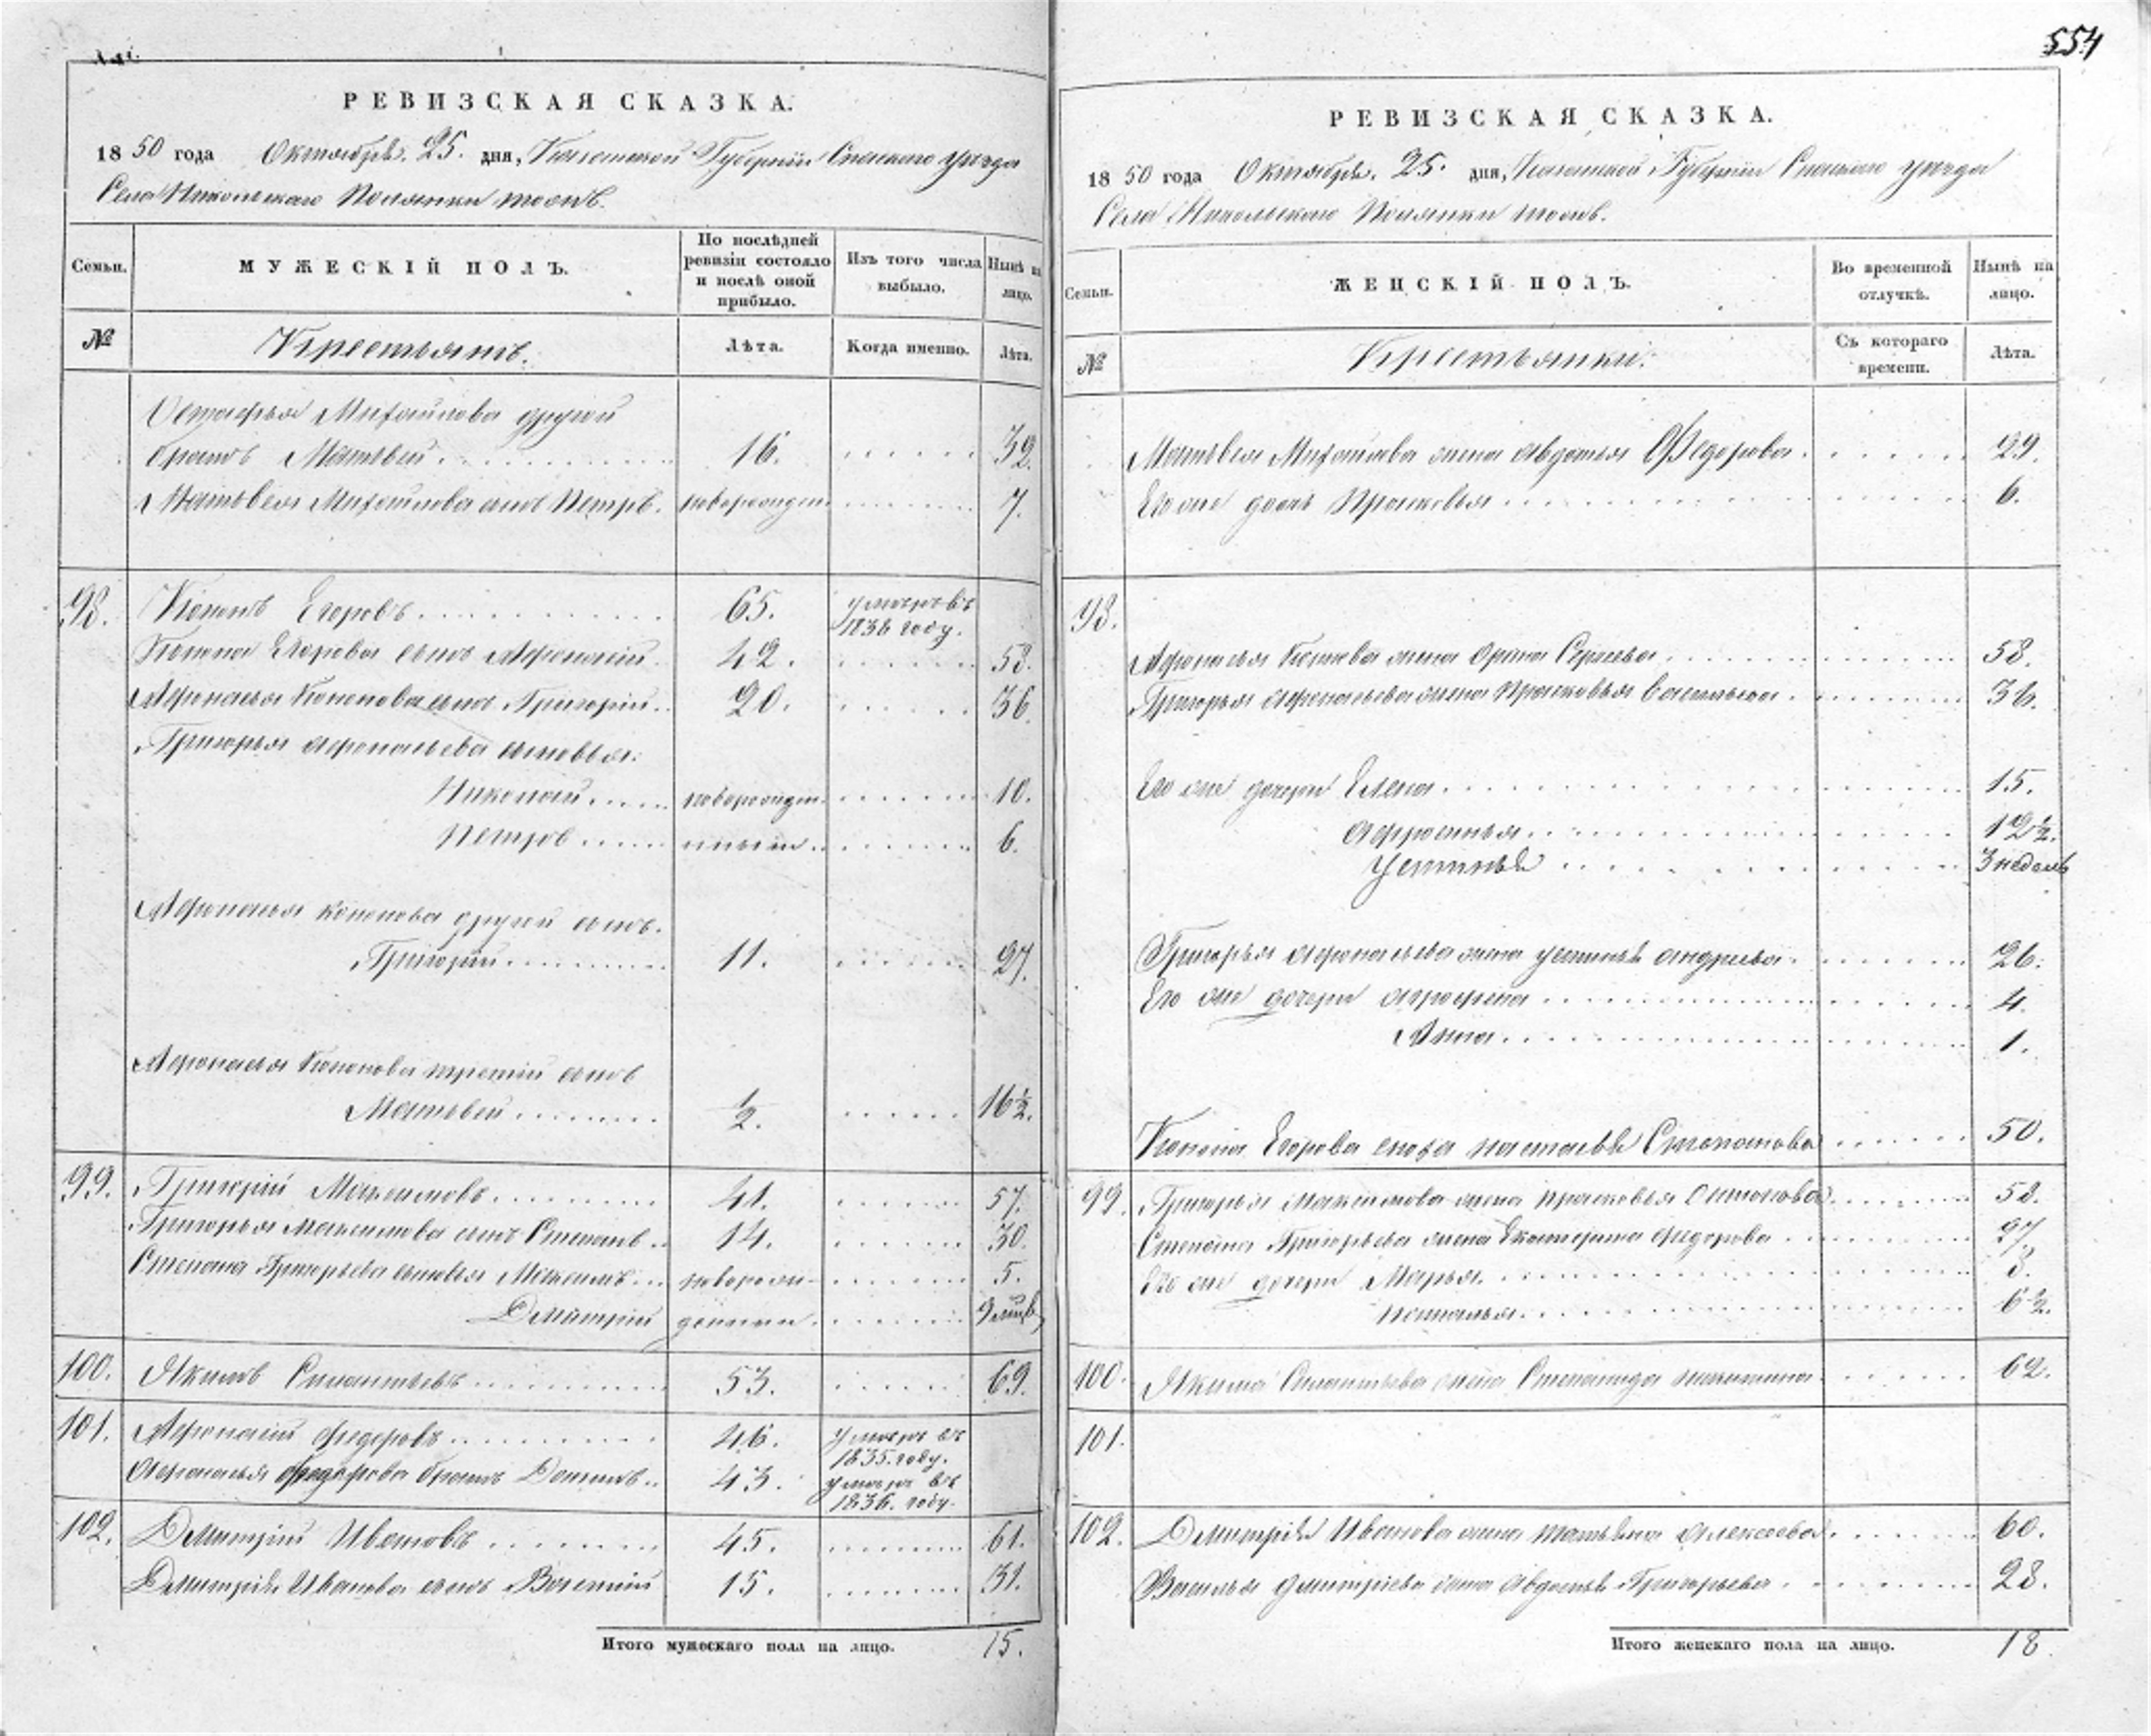 554
РЕВИЗСКАЯ СКАЗКА.
1850 года Октября 25. дня, Казанской Губерніи Спаскаго уѣзда
Села Никольскаго Полянки тожъ.
Семьи. МУЖЕСКІЙ ПОЛЪ. По послѣдней ревизіи состояло и послѣ оной прибыло. Изъ того числа выбыло. Нынѣ на лицо.
№ Крестьянъ. Лѣта. Когда именно. Лѣта.
Остафья Михайлова другой
братъ Матвей 16. 32.
Матвея Михайлова сынъ Петръ. новорожден 7.
98. Кононъ Егоровъ 65. умеръ въ 1836 году.
Конона Егорова сынъ Афонасій 42. 58.
Афонасья Кононова сынъ Григорій 20. 36.
Григорья Афонасьева сыновья:
Николай новорожден 10.
Петръ нныи 6.
Афонасья Кононова другой сынъ.
Григорій 11. 27.
Афонасья Кононова третій сынъ
Матвей 1/2. 16 1/2.
99. Григорій Максимовъ 41. 57.
Григорья Максимова сынъ Степанъ 14. 30.
Степана Григорьева сыновья Максимъ новорож 5.
Дмитрій
100. Якимъ Силантьевъ 53. 69.
101. Афонасій Федоровъ 46. умеръ въ 1835. году.
Афонасья Федорова братъ 43. умеръ въ 1836. году.
102. Дмитрій Ивановъ 45. 61.
Дмитрія Иванова сынъ Василій 15. 31.
Итого мужескаго пола на лицо. 15.
РЕВИЗСКАЯ СКАЗКА.
1850 года Октября. 25. дня, Казанской Губерніи Спаскаго уѣзда
Села Никольскаго Полянки тожъ.
Семьи. ЖЕНСКІЙ ПОЛЪ. Во временной отлучкѣ. Нынѣ на лицо.
№ Крестьянки. Съ котораго времени. Лѣта.
Матвея Михайлова жена Авдотья Федорова 29.
Его же дочь Прасковья 6.
98.
Афонасья Кононова жена Орина Сергеева 58.
Григорья Афонасьева жена Прасковья Васильева 36.
Его же дочери Елена 15.
Афросинья 12 1/2.
Устинья 3 недель
Григорья Афонасьева жена Устинья Андреева 26.
Его же дочери Аграфена 4.
Анна 1.
Конона Егорова сноха Настасья Степанова 50.
99. Григорья Максимова жена Прасковья Антонова 58.
Степана Григорьева жена Екатерина Федорова 27
Его же дочери Марья 3.
Наталья
100. Якима Силантьева жена Степанида Никитина 62.
101.
102. Дмитрія Иванова жена Татьяна Алексеева 60.
Василья Дмитріева жена Авдотья Григорьева 28.
Итого женскаго пола на лицо. 18